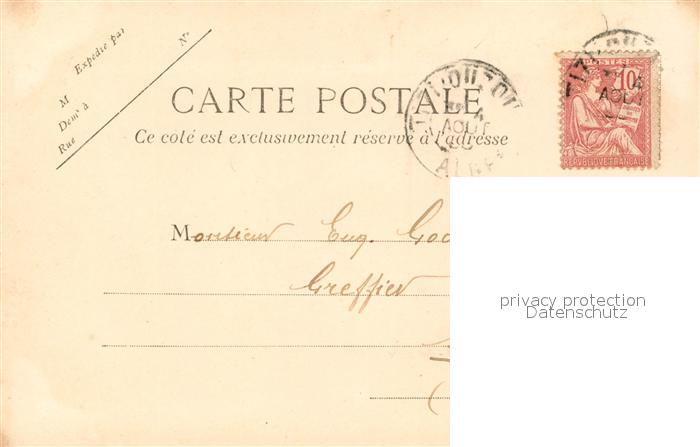 Expédié par
N°
M
Dem<sup>t</sup> à
Rue
CARTE POSTALE
Ce coté est exclusivement réservé à l'adresse
TIZI-OUZOU
AOUT
POSTES
10
AOUT
REPUBLIQUE FRANÇAISE
Monsieur Eug.
Greffier
privacy protection
Datenschutz